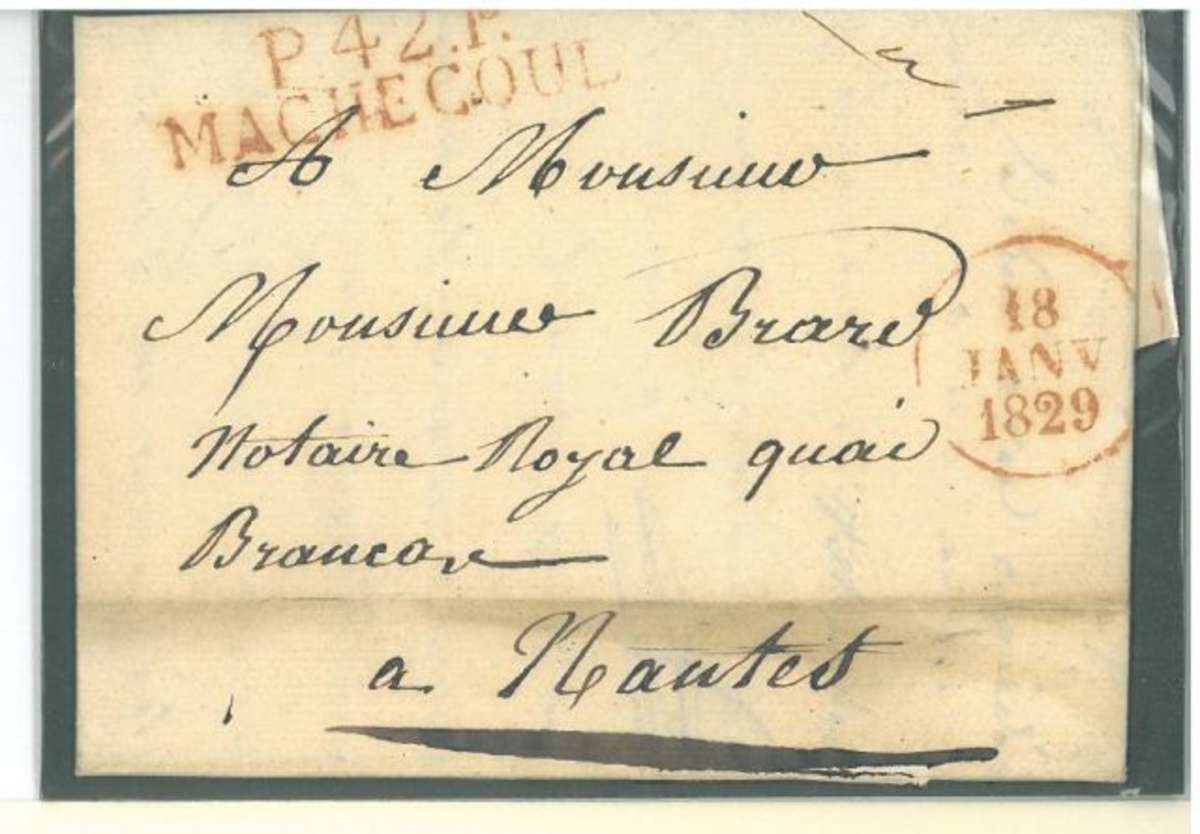 P.42.P.
MACHECOUL
A Monsieur
Monsieur Brard
Notaire Royal quai
Brancas
a Nantes
18
JANV
1829